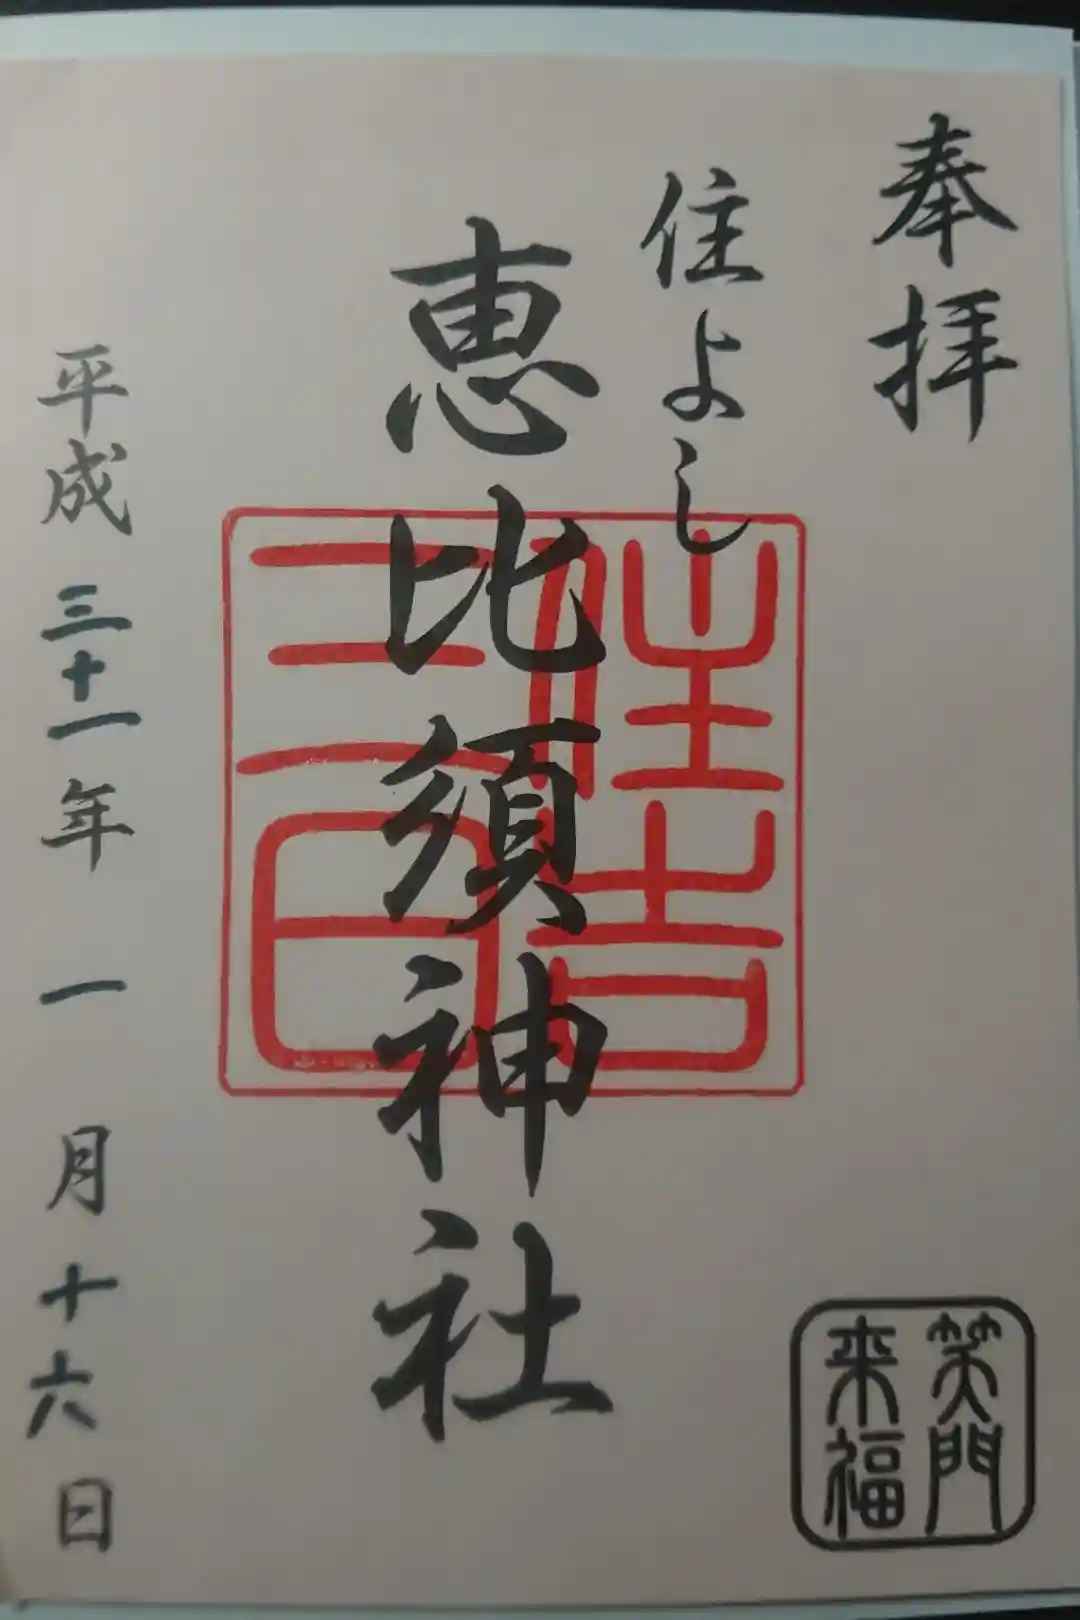 奉拝
住よし
恵比須神社
住吉
二宮
平成三十一年一月十六日
笑門
来福